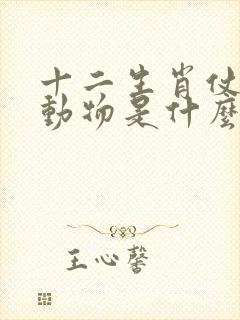 十二生肖仗
動物是什麼
王心馨